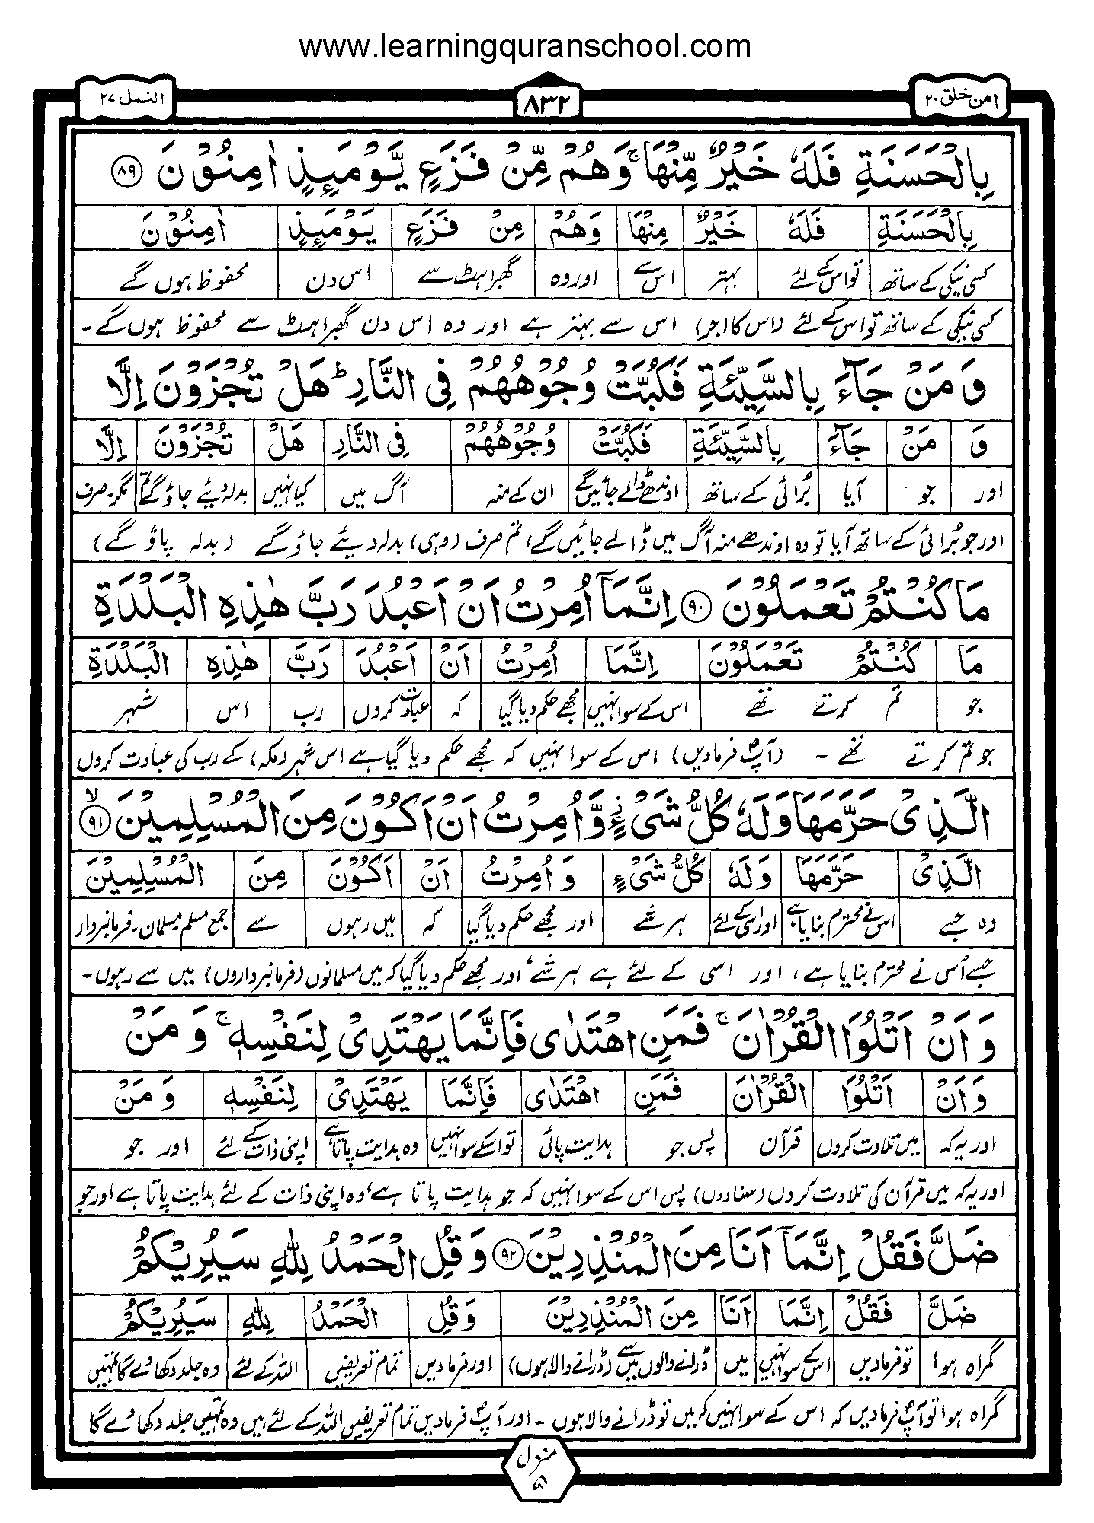 www.learningquranschool.com
امن خلق ۲۰
۸۳۲
النمل ۲۷
بِالْحَسَنَةِ فَلَهٗ خَيْرٌ مِّنْهَا ۚ وَهُمْ مِّنْ فَزَعٍ يَّوْمَئِذٍ اٰمِنُوْنَ ﴿۸۹﴾
بِالْحَسَنَةِ فَلَهٗ خَيْرٌ مِنْهَا وَهُمْ مِنْ فَزَعٍ يَوْمَئِذٍ اٰمِنُوْنَ
کسی نیکی کے ساتھ تو اس کے لئے بہتر اس سے اور وہ گھبراہٹ سے اس دن محفوظ ہوں گے
کسی نیکی کے ساتھ تو اس کے لئے (اس کا اجر) اس سے بہتر ہے اور وہ اس دن گھبراہٹ سے محفوظ ہوں گے۔
وَ مَنْ جَآءَ بِالسَّيِّئَةِ فَكُبَّتْ وُجُوْهُهُمْ فِى النَّارِ ؕ هَلْ تُجْزَوْنَ اِلَّا
وَ مَنْ جَآءَ بِالسَّيِّئَةِ فَكُبَّتْ وُجُوْهُهُمْ فِى النَّارِ هَلْ تُجْزَوْنَ اِلَّا
اور جو آیا بُرائی کے ساتھ اوندھے ڈالے جائیں گے ان کے منہ آگ میں کیا نہیں بدلہ دیئے جاؤ گے تم مگر۔صرف
اور جو بُرائی کے ساتھ آیا تو وہ اوندھے منہ آگ میں ڈالے جائیں گے، تم صرف (وہی) بدلہ دیئے جاؤ گے (بدلہ پاؤ گے)
مَا كُنْتُمْ تَعْمَلُوْنَ ﴿۹۰﴾ اِنَّمَآ اُمِرْتُ اَنْ اَعْبُدَ رَبَّ هٰذِهِ الْبَلْدَةِ
مَا كُنْتُمْ تَعْمَلُوْنَ اِنَّمَا اُمِرْتُ اَنْ اَعْبُدَ رَبَّ هٰذِهِ الْبَلْدَةِ
جو تم کرتے تھے اس کے سوا نہیں مجھے حکم دیا گیا کہ عبادت کروں رب اس شہر
جو تم کرتے تھے ۔ (آپؐ فرمادیں) اس کے سوا نہیں کہ مجھے حکم دیا گیا ہے اس شہر (مکہ) کے رب کی عبادت کروں
الَّذِىْ حَرَّمَهَا وَلَهٗ كُلُّ شَىْءٍ ؗ وَّاُمِرْتُ اَنْ اَكُوْنَ مِنَ الْمُسْلِمِيْنَ ﴿۹۱﴾ ۙ
الَّذِىْ حَرَّمَهَا وَلَهٗ كُلُّ شَىْءٍ وَ اُمِرْتُ اَنْ اَكُوْنَ مِنَ الْمُسْلِمِيْنَ
وہ جسے اس نے محترم بنایا ہے اور اسی کے لئے ہر شے اور مجھے حکم دیا گیا کہ میں رہوں سے جمع مسلم مسلمان۔فرمانبردار
جسے اُس نے محترم بنایا ہے، اور اسی کے لئے ہے ہر شے، اور مجھے حکم دیا گیا کہ میں مسلمانوں (فرمانبرداروں) میں سے رہوں۔
وَ اَنْ اَتْلُوَا الْقُرْاٰنَ ۚ فَمَنِ اهْتَدٰى فَاِنَّمَا يَهْتَدِىْ لِنَفْسِهٖ ۚ وَ مَنْ
وَ اَنْ اَتْلُوَا الْقُرْاٰنَ فَمَنِ اهْتَدٰى فَاِنَّمَا يَهْتَدِىْ لِنَفْسِهٖ وَ مَنْ
اور یہ کہ میں تلاوت کروں قرآن پس جو ہدایت پائی تو اسکے سوا نہیں وہ ہدایت پاتا ہے اپنی ذات کے لئے اور جو
اور یہ کہ میں قرآن کی تلاوت کروں (سنا دوں) پس اس کے سوا نہیں کہ جو ہدایت پاتا ہے، وہ اپنی ذات کے لئے ہدایت پاتا ہے اور جو
ضَلَّ فَقُلْ اِنَّمَآ اَنَا مِنَ الْمُنْذِرِيْنَ ﴿۹۲﴾ وَقُلِ الْحَمْدُ لِلّٰهِ سَيُرِيْكُمْ
ضَلَّ فَقُلْ اِنَّمَا اَنَا مِنَ الْمُنْذِرِيْنَ وَقُلِ الْحَمْدُ لِلّٰهِ سَيُرِيْكُمْ
گمراہ ہوا تو فرمادیں اس کے سوا نہیں میں ڈرانے والوں میں سے (ڈرانے والا ہوں) اور فرمادیں تمام تعریفیں اللہ کے لئے وہ جلد دکھا دے گا تمہیں
گمراہ ہوا تو آپؐ فرمادیں کہ اس کے سوا نہیں کہ میں تو ڈرانے والا ہوں ۔ اور آپؐ فرمادیں تمام تعریفیں اللہ کے لئے ہیں وہ تمہیں جلد دکھا دے گا
منزل ۵